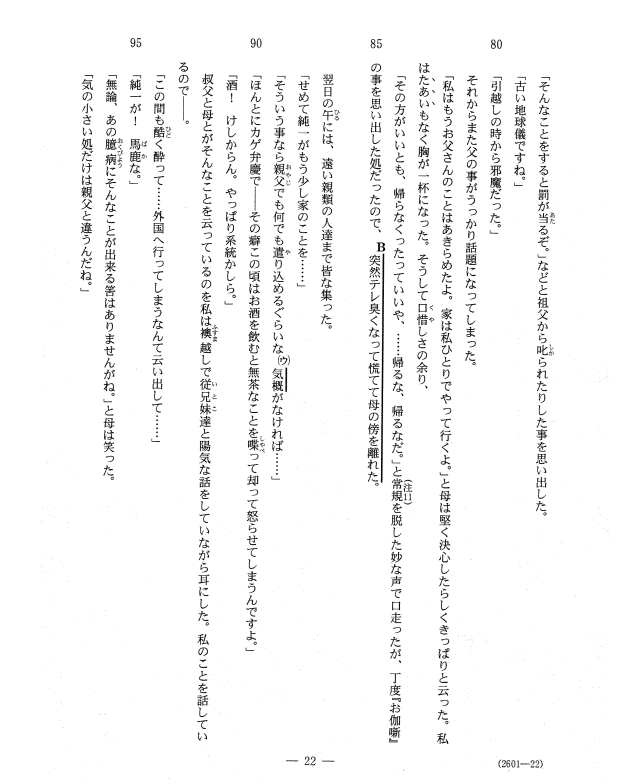 「そんなことをすると罰が当るぞ。」などと祖父から叱られたりした事を思い出した。
「古い地球儀ですね。」
80
「引越しの時から邪魔だった。」
それからまた父の事がうっかり話題になってしまった。
「私はもうお父さんのことはあきらめたよ。家は私ひとりでやって行くよ。」と母は堅く決心したらしくきっぱりと云った。私
はたあいもなく胸が一杯になった。そうして口惜しさの余り、
「その方がいいとも、帰らなくったっていいや、……帰るな、帰るなだ。」と常規を脱した妙な声で口走ったが、丁度『お伽噺』
(注11)
85
の事を思い出した処だったので、B突然テレ臭くなって慌てて母の傍を離れた。
翌日の午には、遠い親類の人達まで皆な集った。
「せめて純一がもう少し家のことを……」
「そういう事なら親父でも何でも遣り込めるぐらいな(ウ)気概がなければ……」
90
「ほんとにカゲ弁慶で――その癖この頃はお酒を飲むと無茶なことを喋って却って怒らせてしまうんですよ。」
「酒！　けしからん。やっぱり系統かしら。」
叔父と母とがそんなことを云っているのを私は襖越しで従兄妹達と陽気な話をしていながら耳にした。私のことを話してい
るので――。
「この間も酷く酔って……外国へ行ってしまうなんて云い出して……」
95
「純一が！　馬鹿な。」
「無論、あの臆病にそんなことが出来る筈はありませんがね。」と母は笑った。
「気の小さい処だけは親父と違うんだね。」
― 22 ―
(2601―22)